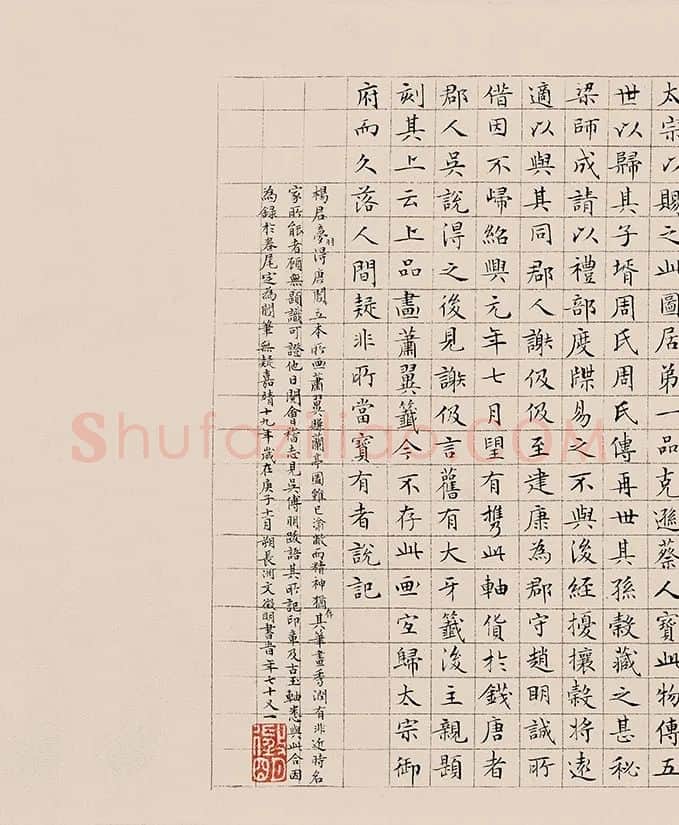 太宗以賜之此圖居弟一品克遜蔡人寶此物傳五
世以歸其子壻周氏周氏傳再世其孫榖藏之甚秘
梁師成請以禮部度牒易之不與後經擾攘榖將遠
適以與其同郡人謝伋伋至建康為郡守趙明誠所
借因不歸紹興元年七月望有攜此軸貨於錢唐者
郡人吳說得之後見謝伋言舊有大牙籤後主親題
刻其上云上品畫蕭翼籤今不存此画宜歸太宗御
府而久落人間疑非所當寶有者說記
楊君夢羽得唐閻立本所画蕭翼賺蘭亭圖雖已渝敝而精神猶存其筆畫秀潤有非近時名
家所能者顧無題識可證他日閱會稽志見吳傅朋跋語其所記印章及古玉軸悉與此合因
為錄於卷尾定為閻筆無疑嘉靖十九年歲在庚子十月朔長洲文徵明書昔年七十又一
徵明
ShufaZiliao.COM